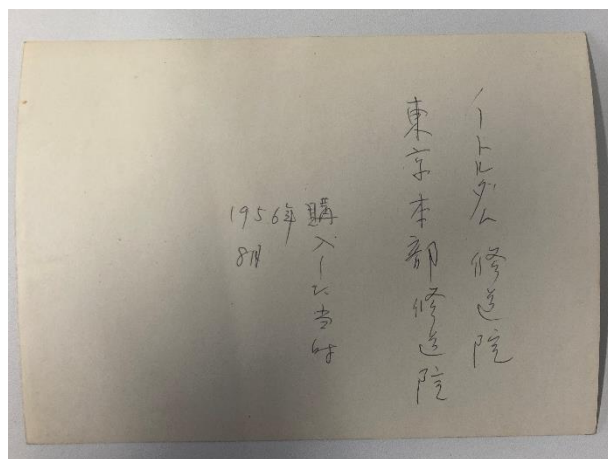 ノートルダム修道院
東京本部修道院
購入した当時
1956年
8月